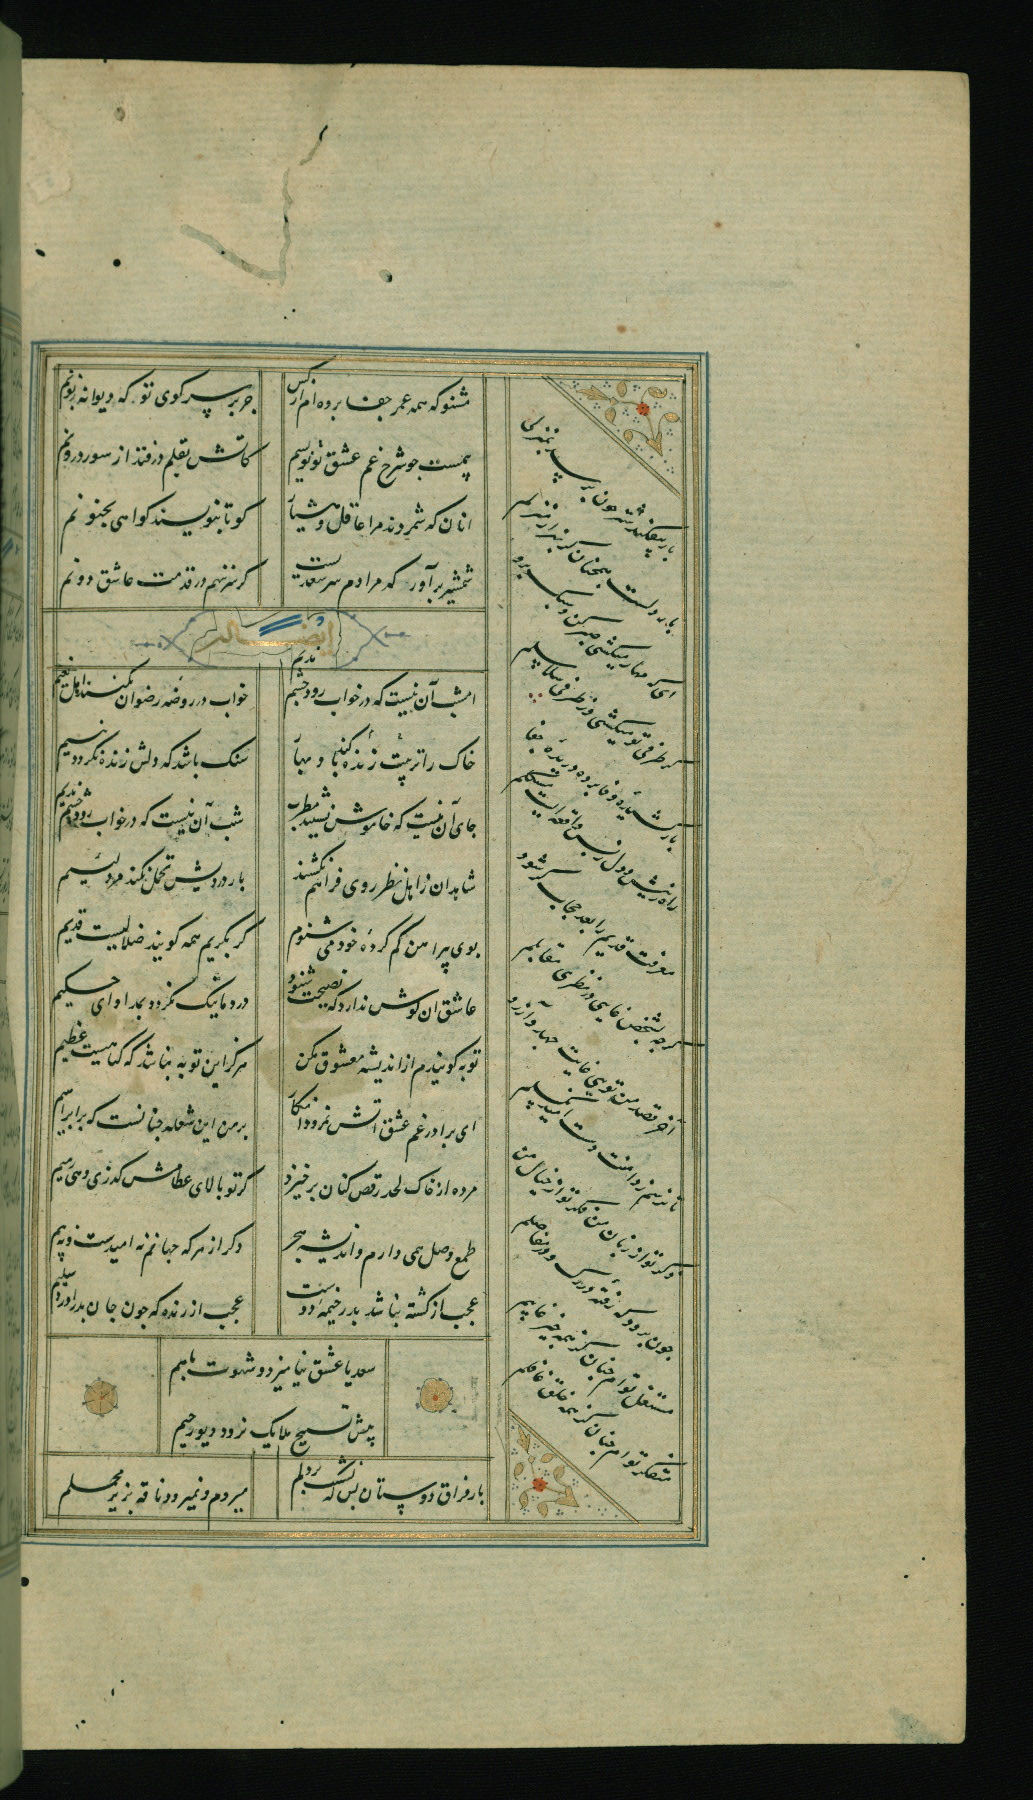 مشنو که همه عمر جفا برده ام از کس جز بر سر کوی تو که دیوانه زبونم
پیمست چو شرح غم عشق تو نویسم کاتش بقلم در فتد از سوز درونم
انان که شمردند مرا عاقل و هشیار کو تا بنویسند کواهی بجنونم
شمشیر برآور که مرادم سر سعدیست کر سر ننهم در قدمت عاشق دونم
ایضاً له
امشب آن نیست که در خواب رود چشم ندیم خواب در روضه رضوان نکند اهل نعیم
خاک را تربیت زنده کند باد بهار سنک باشد که دلش زنده نکردد بنسیم
جای آن نیست که خاموش نشیند مطرب شب آن نیست که در خواب رود چشم ندیم
شاهدان ز اهل نظر روی فراهم نکشند بار درویش تحمل نکند مرد لئیم
بوی پیراهن کم کرده خود می شنوم کر بکریم همه کویند ضلالیست قدیم
عاشق ان کوش ندارد که نصیحت شنود درد ما نیک نکردد بمداوای حکیم
توبه کویندم از اندیشه معشوق بکن هرکز این توبه نباشد که کناهیست عظیم
ای برادر غم عشق اتش نمرود انکار بر من این شعله چنانست که بر ابراهیم
مرده از خاک لحد رقص کنان برخیزد کر تو بالای عظامش کذری وهی رمیم
طمع وصل همی دارم و اندیشه هجر دکر از هرکه جهانم نه امیدست و نه بیم
عجب از کشته نباشد بدر خیمه دوست عجب از زنده که چون جان بدر آورد سلیم
سعدیا عشق نیامیزد و شهوت باهم
پیش تسبیح ملایک نرود دیو رجیم
بار فراق دوستان بس که نشست بر دلم میروم و نمیرود ناقه بزیر محملم
بار بیفکند شتر چون برسد بمنزلی
بار دلست همچنان کر بهزار منزلم
ای که مهار میکشی صبر کن و سبک مرو
کز طرفی تو میکشی وز طرفی سلاسلم
بار کشیده جفا پرده دریده وفا
راه ز پیش و دل ز پس واقعه ایست مشکلم
معرفت قدیم را بعد حجاب کی شود
کرچه بشخص غایبی در نظری مقابلم
آخر قصد من توی غایت جهد و آرزو
تا نرسم ز دامنت دست امید نکسلم
ذکر تو از زبان من فکر تو از خیال من
چون برود که رفته در رک و در مفاصلم
مشتغل توام چنان کز همه چیز غایبم
متفکر توام چنان کز همه خلق غافلم